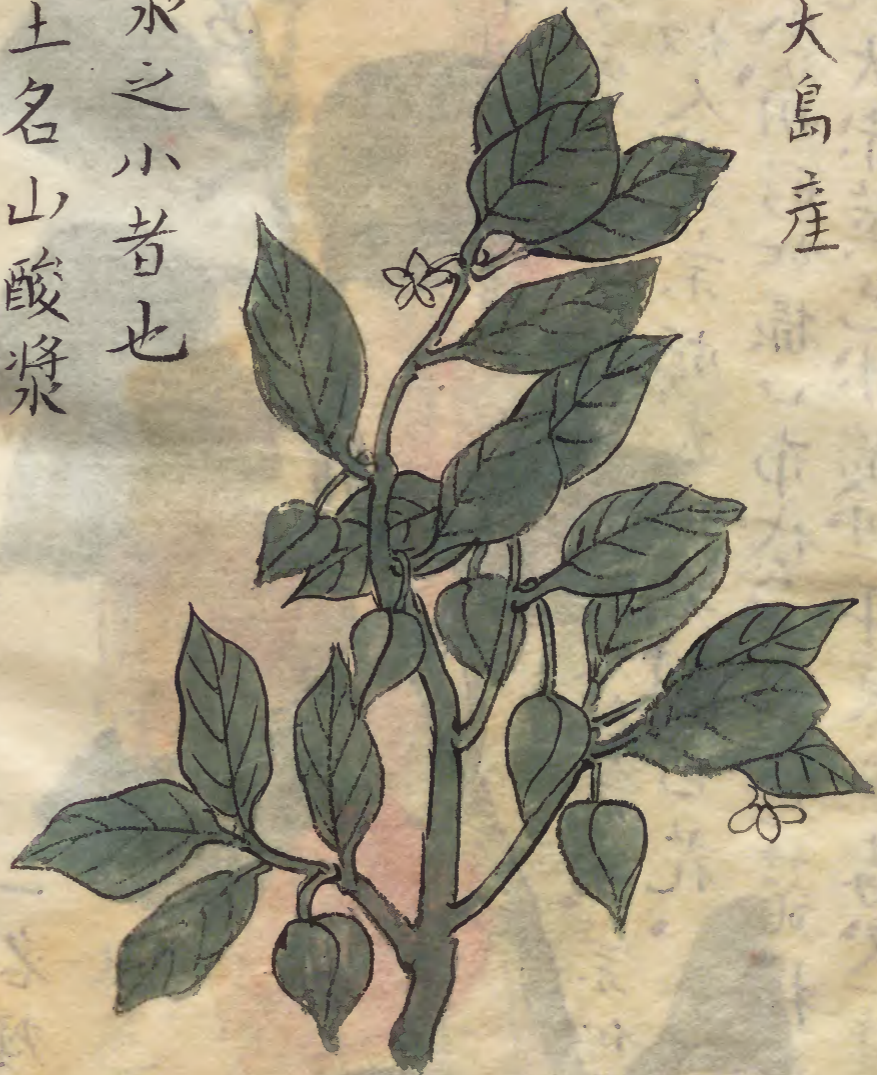 大島産
之小者也
土名山酸漿